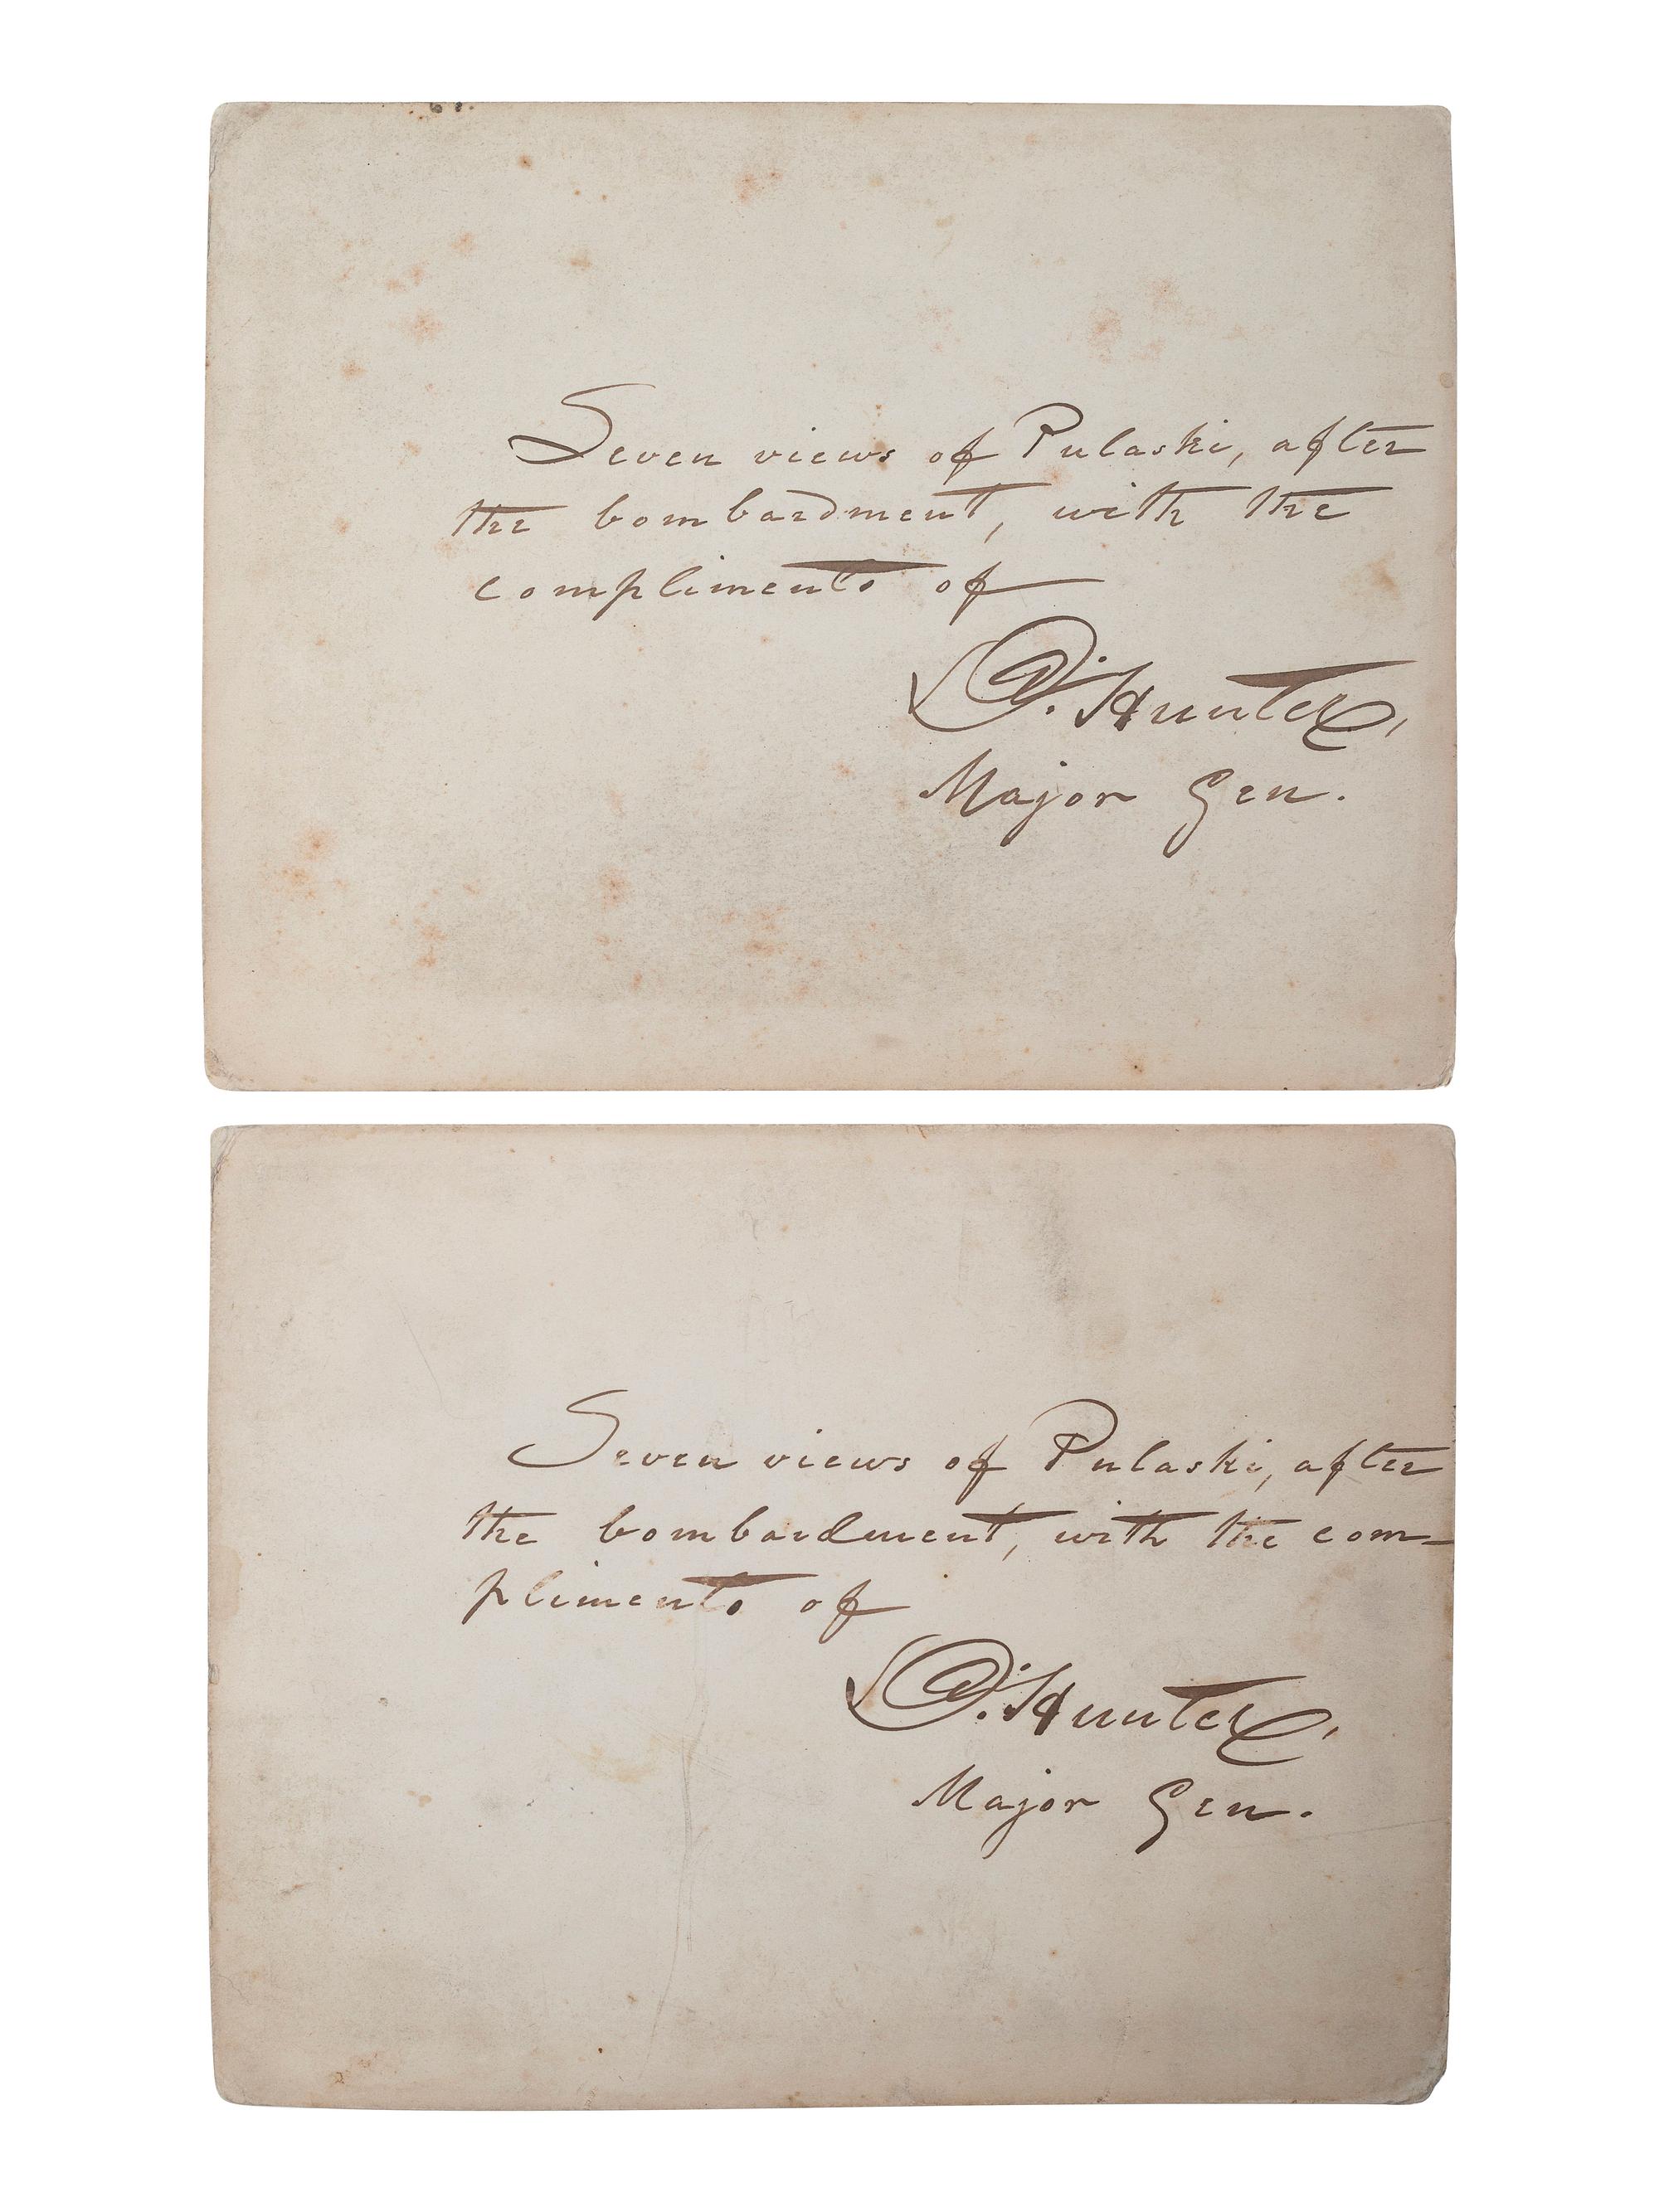 Seven views of Pulaski, after
the bombardment, with the
compliments of
D. Hunter,
Major Gen.
Seven views of Pulaski, after
the bombardment, with the com-
pliments of
D. Hunter,
Major Gen.